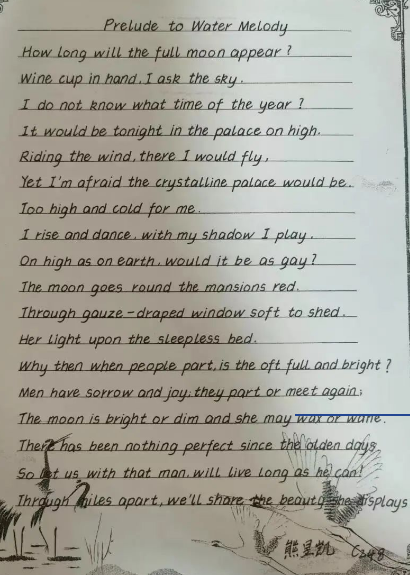 Prelude to Water Melody
How long will the full moon appear?
Wine cup in hand, I ask the sky.
I do not know what time of the year?
It would be tonight in the palace on high.
Riding the wind, there I would fly,
Yet I'm afraid the crystalline palace would be.
Too high and cold for me.
I rise and dance, with my shadow I play.
On high as on earth, would it be as gay?
The moon goes round the mansions red.
Through gauze-draped window soft to shed.
Her light upon the sleepless bed.
Why then when people part, is the oft full and bright?
Men have sorrow and joy; they part or meet again;
The moon is bright or dim and she may wax or wane.
There has been nothing perfect since the olden days
So let us with that man, will live long as he can!
Through miles apart, we'll share the beauty she displays
熊星凯 C248